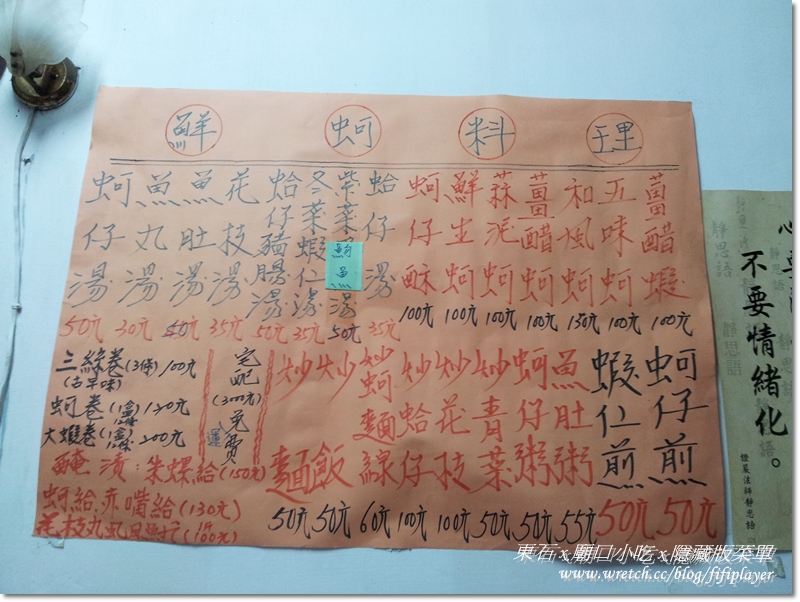 鮮蚵料理
蚵仔湯 50元
魚丸湯 30元
魚肚湯
花枝湯 35元
蛤仔豬腸湯 50元
冬菜蝦仁湯 35元
紫菜魩魚湯 50元
蛤仔湯 35元
蚵仔酥 100元
鮮生蚵 100元
蒜泥蚵 100元
薑醋蚵 100元
和風蚵 130元
五味蚵 100元
薑醋蝦 100元
三絲卷(3條)100元
(古早味)
蚵卷(1盒/12條)120元
大蝦卷(1盒/12條)200元
宅配(3000元)免運費
炒麵 50元
炒飯 50元
炒蚵麵線 60元
炒蛤仔 100元
炒花枝 100元
炒青菜 50元
蚵仔粥 50元
魚肚粥 55元
蝦仁煎 50元
蚵仔煎 50元
醃漬:朱螺給(150元)
蚵給.赤嘴給(130元)
花枝丸虱目魚打(1斤/100元)
不要情緒化。
證嚴法師靜思語
靜思語
東石 x 廟口小吃 x 隱藏版菜單
www.wretch.cc/blog/fifiplayer